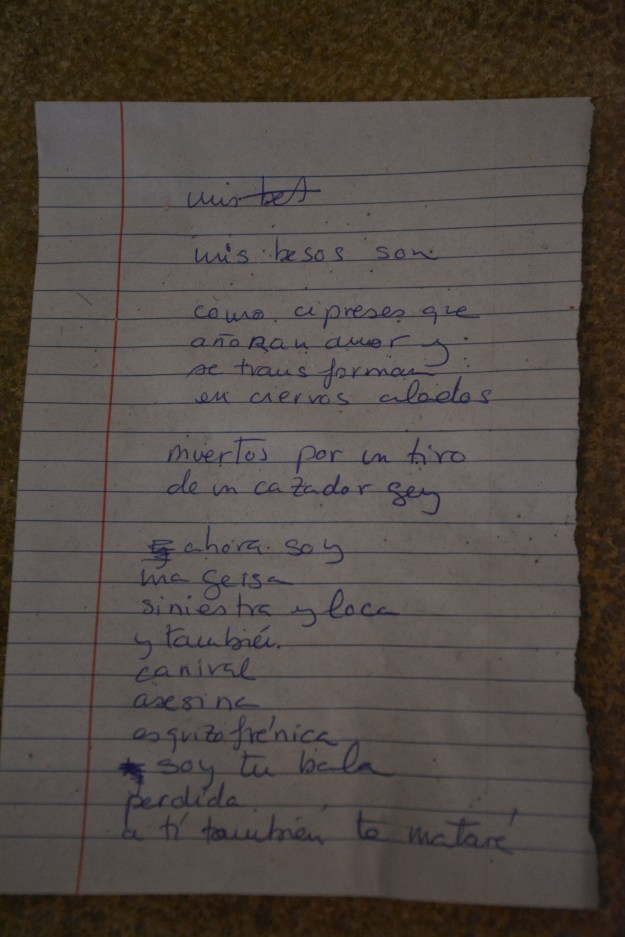 mis bes
mis besos son
como cipreses que
añoran amor y
se transforman
en ciervos alados
muertos por un tiro
de un cazador gay
ahora soy
una geisa
siniestra y loca
y también.
canival
asesina
esquizofrénica
soy tu bala
perdida
a tí también te mataré